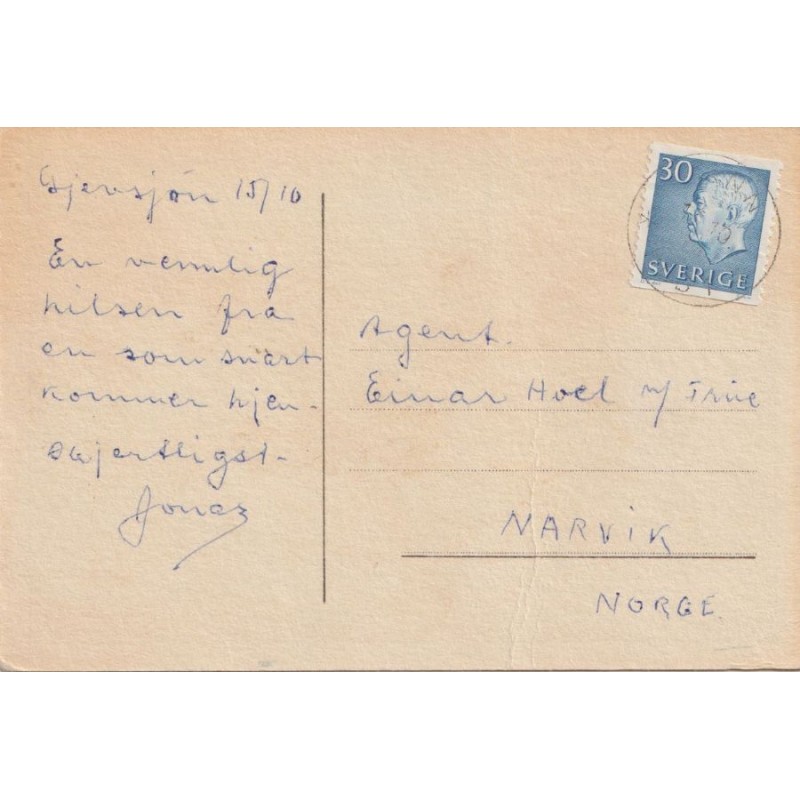 Gjevsjön 15/10
En vennlig
hilsen fra
en som snart
kommer hjem-
Hjertligst-
Jonas
30
SVERIGE
Agent.
Einar Hoel m/ Frue
NARVIK
NORGE